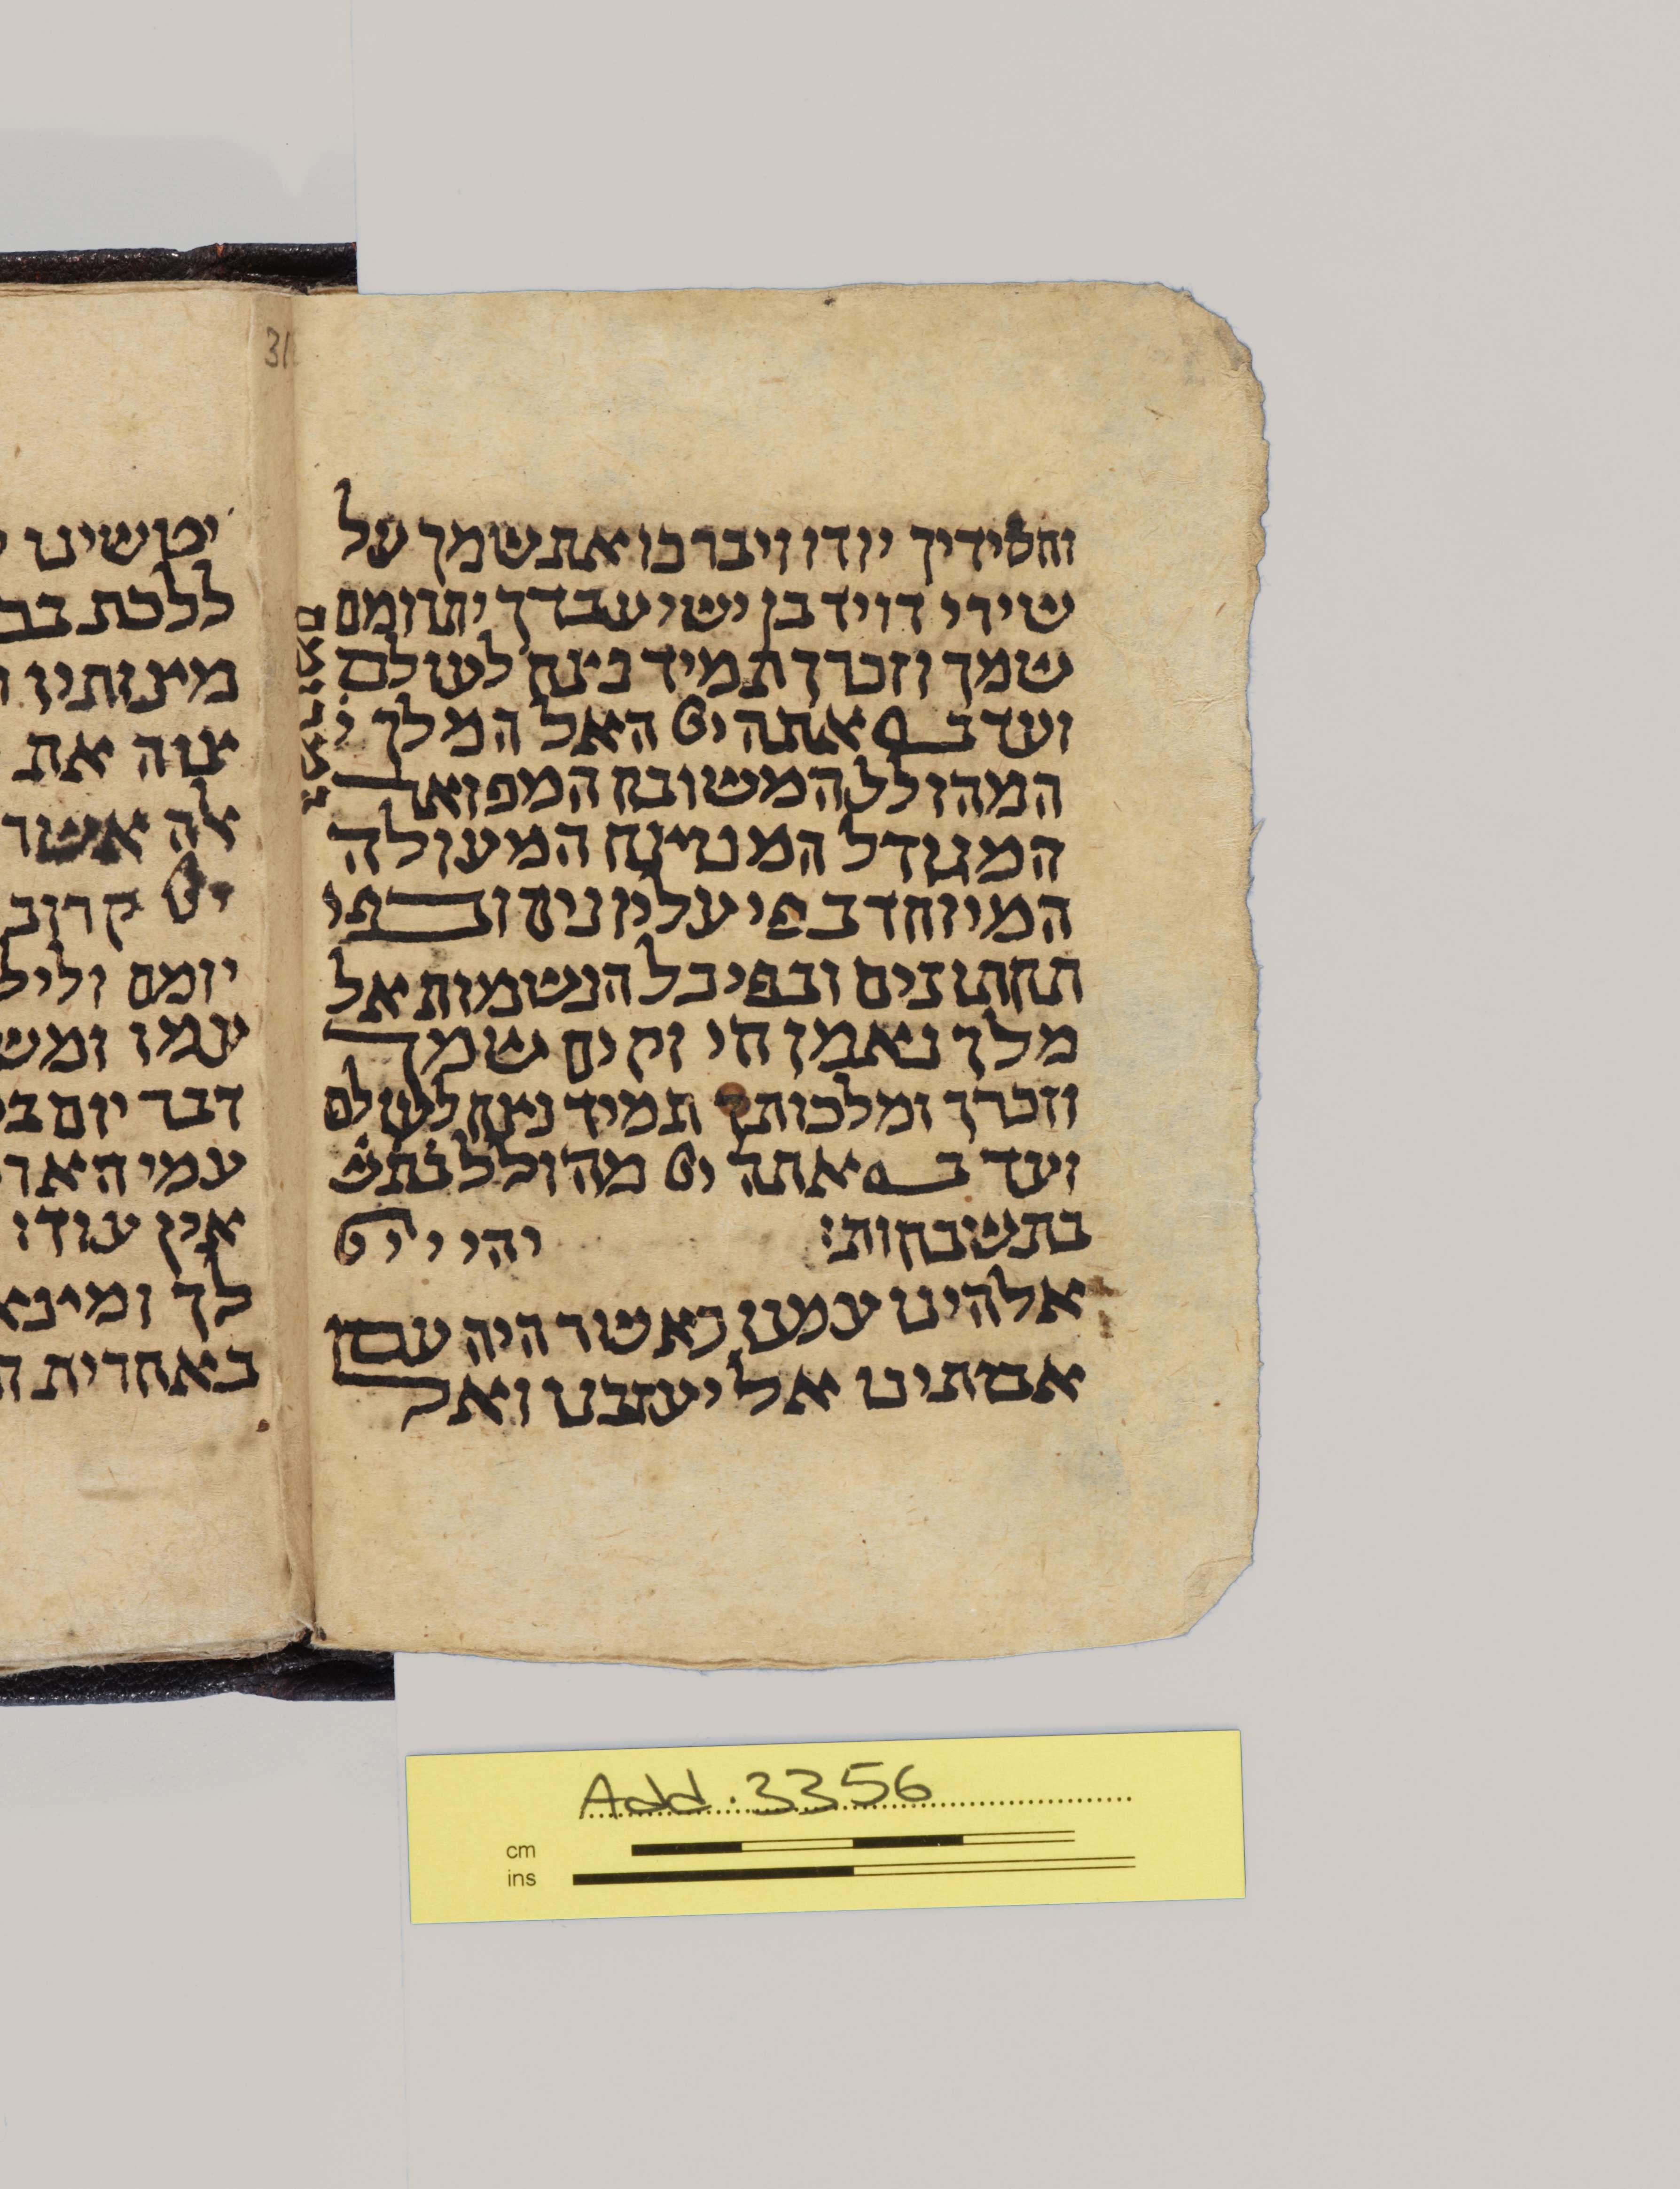 וחסידיך יודו ויברכו את שמך על
שירי דויד בן ישי עבדך יתרומם
שמך וזכרך תמיד נצח לעולם
ועד ב אתה יי האל המלך
המהולל המשובח המפואר
המגודל המנוצח המעולה
המיוחד בפי עליונים ובפי
תחתונים ובפי כל הנשמות אל
מלך נאמן חי וקים שמך
וזכרך ומלכותך תמיד נצח לעולם
ועד ב אתה יי מהולל בתש
בתשבחות: יהי יי
אלהינו עמנו כאשר היה עם
אבתינו אל יעזבנו ואל
31
ללכת בכ
מצותיו
צוה את
לה אשר
יי קרוב
יומם וליל
עמו ומש
דבר יום בי
עמי האר
אין עוד ו
לך ומ
באחרית ה
Add. 3356
cm
ins